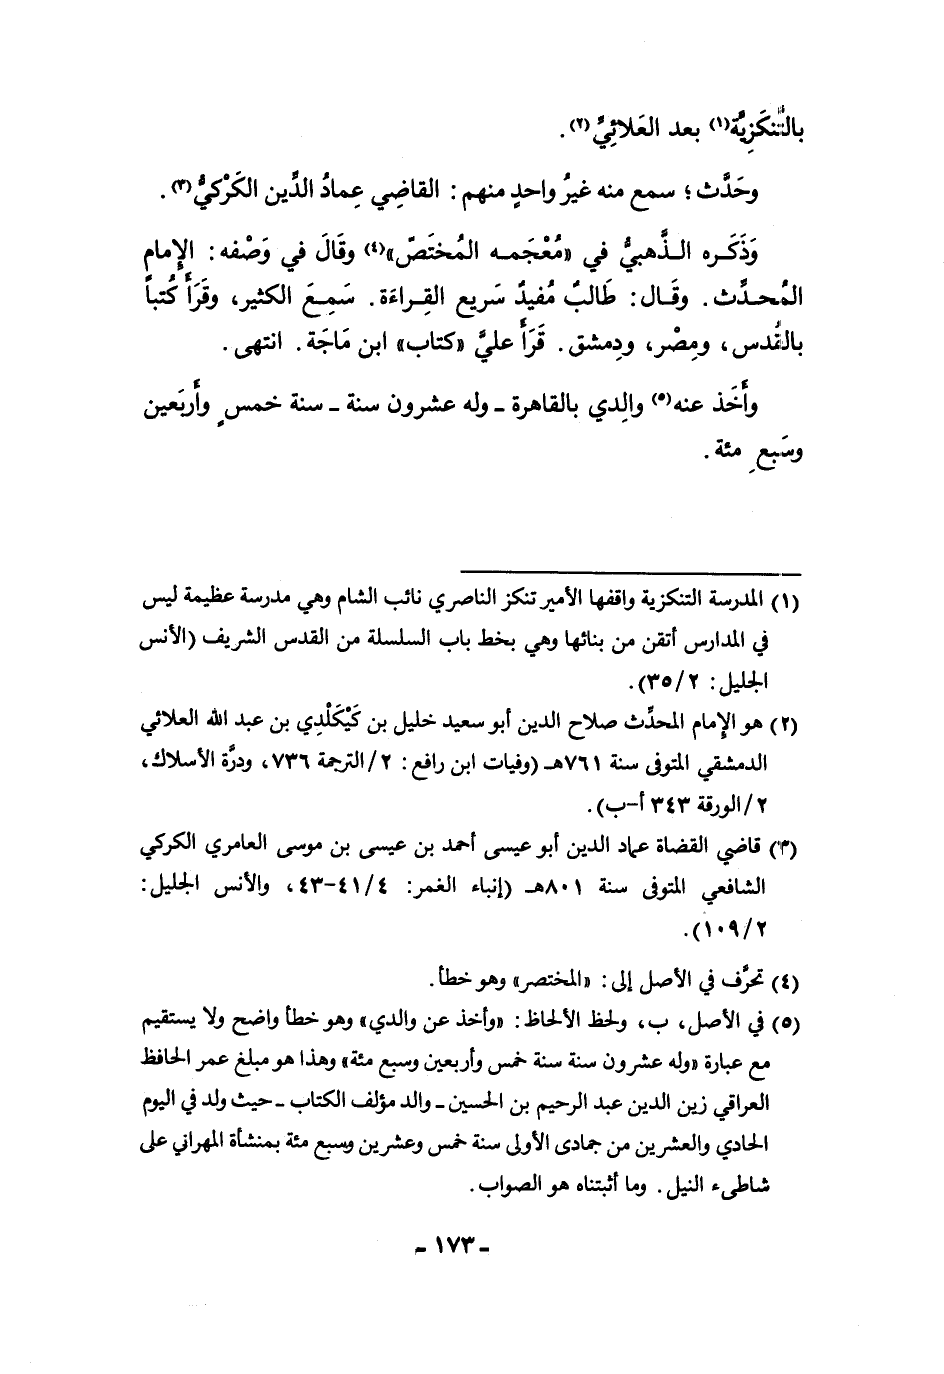 بالتَّنكَزِيَّة(١) بعد العَلائِيِّ(٢).
وحَدَّث؛ سمع منه غيرُ واحدٍ منهم: القاضِي عِمادُ الدِّين الكَرْكيُّ(٣).
وَذَكَـره الـذَّهبيُّ في «مُعْجَمـه المُختَصّ»(٤) وقَالَ في وَصْفه: الإِمام
المُحـدِّث. وقَـال: طَالبٌ مُفيدٌ سَريع القِـراءَة. سَمِـعَ الكثير، وقَرَأَ كُتباً
بالقُدس، ومِصْر، ودِمشق. قَرَأَ عليَّ «كتاب» ابن مَاجَة. انتهى.
وأَخَذ عنه(٥) والِدي بالقاهرة ـ وله عشرون سنة ـ سنة خمسٍ وأَربَعين
وسَبعِ مئة.
(١) المدرسة التنكزية واقفها الأمير تنكز الناصري نائب الشام وهي مدرسة عظيمة ليس
في المدارس أتقن من بنائها وهي بخط باب السلسلة من القدس الشريف (الأنس
الجليل: ٣٥/٢).
(٢) هو الإِمام المحدِّث صلاح الدين أبو سعيد خليل بن كَيْكَلْدِي بن عبد الله العلائي
الدمشقي المتوفى سنة ٧٦١هـ (وفيات ابن رافع: ٢/الترجمة ٧٣٦، ودرَّة الأسلاك،
٢/الورقة ٣٤٣ أ-ب).
(٣) قاضي القضاة عماد الدين أبو عيسى أحمد بن عيسى بن موسى العامري الكركي
الشافعي المتوفى سنة ٨٠١هـ (إنباء الغمر: ٤١/٤-٤٣، والأنس الجليل:
١٠٩/٢).
(٤) تحرَّف في الأصل إلى: «المختصر» وهو خطأ.
(٥) في الأصل، ب، ولحظ الألحاظ: «وأخذ عن والدي» وهو خطأ واضح ولا يستقيم
مع عبارة «وله عشرون سنة سنة خمس وأربعين وسبع مئة» وهذا هو مبلغ عمر الحافظ
العراقي زين الدين عبد الرحيم بن الحسين ـ والد مؤلف الكتاب ـ حيث ولد في اليوم
الحادي والعشرين من جمادى الأولى سنة خمس وعشرين وسبع مئة بمنشأة المهراني على
شاطىء النيل. وما أثبتناه هو الصواب.
ـ ١٧٣ ـ